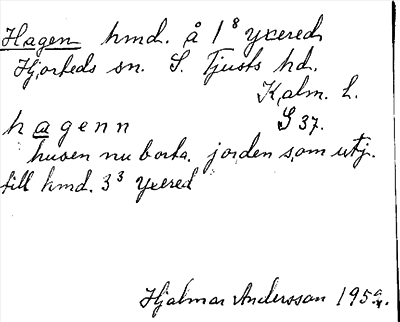 Hagen hmd. å 1⁸ Yxered
Hjorteds sn. S. Tjusts hd.
Kalm. l.
hagenn S 37.
husen nu borta. jorden som utj.
till hmd. 3³ Yxered
Hjalmar Andersson